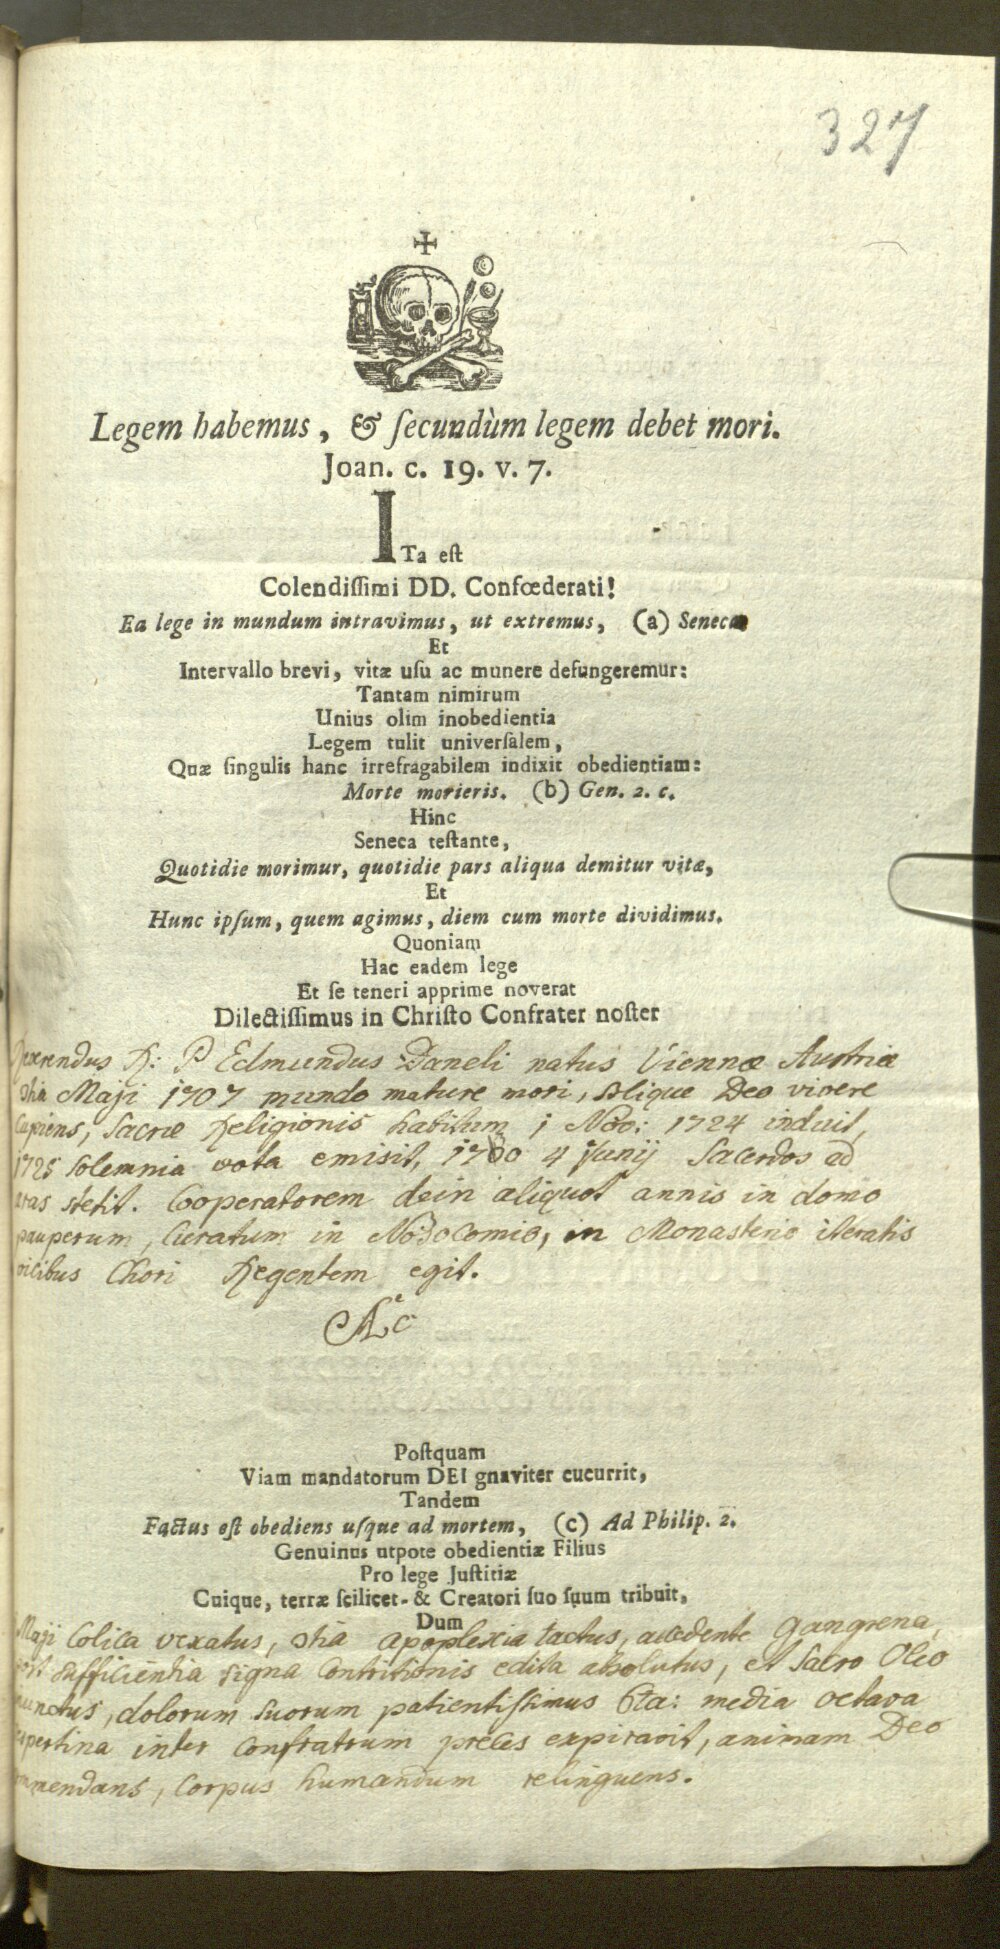 327
Legem habemus, & ſecundùm legem debet mori.
Joan. c. 19. v. 7.
ITa eſt
Colendiſſimi DD. Confœderati!
Ea lege in mundum intravimus, ut extremus, (a) Seneca
Et
Intervallo brevi, vitæ uſu ac munere defungeremur:
Tantam nimirum
Unius olim inobedientia
Legem tulit univerſalem,
Quæ ſingulis hanc irrefragabilem indixit obedientiam:
Morte morieris. (b) Gen. 2. c.
Hinc
Seneca teſtante,
Quotidie morimur, quotidie pars aliqua demitur vitæ,
Et
Hunc ipſum, quem agimus, diem cum morte dividimus.
Quoniam
Hac eadem lege
Et ſe teneri apprime noverat
Dilectiſſimus in Chriſto Confrater noſter
R: P Edmundus Daneli natus Viennæ Austriæ
Maji 1707 mundo mature mori, solique Deo vivere
Cupiens, Sacræ Religionis habitum 1 Nov: 1724 induit,
1725 solemnia vota emisit, 4 Junij Sacerdos ad
aras stetit. Cooperatorem dein aliquot annis in domo
pauperum, Curatum in Nosocomio, in Monasterio iteratis
vicibus Chori Regentem egit.
Poſtquam
Viam mandatorum DEI gnaviter cucurrit,
Tandem
Factus eſt obediens uſque ad mortem, (c) Ad Philip. 2.
Genuinus utpote obedientiæ Filius
Pro lege Juſtitiæ
Cuique, terræ ſcilicet- & Creatori ſuo ſuum tribuit,
Dum
Maji Colica vexatus, apoplexia tactus, accedente gangrena,
sufficientia signa Contritionis edita absolutus, et Sacro Oleo
dolorum suorum patientissimus 6ta: media octava
inter Confratrum preces expiravit, animam Deo
Corpus humandum relinquens.